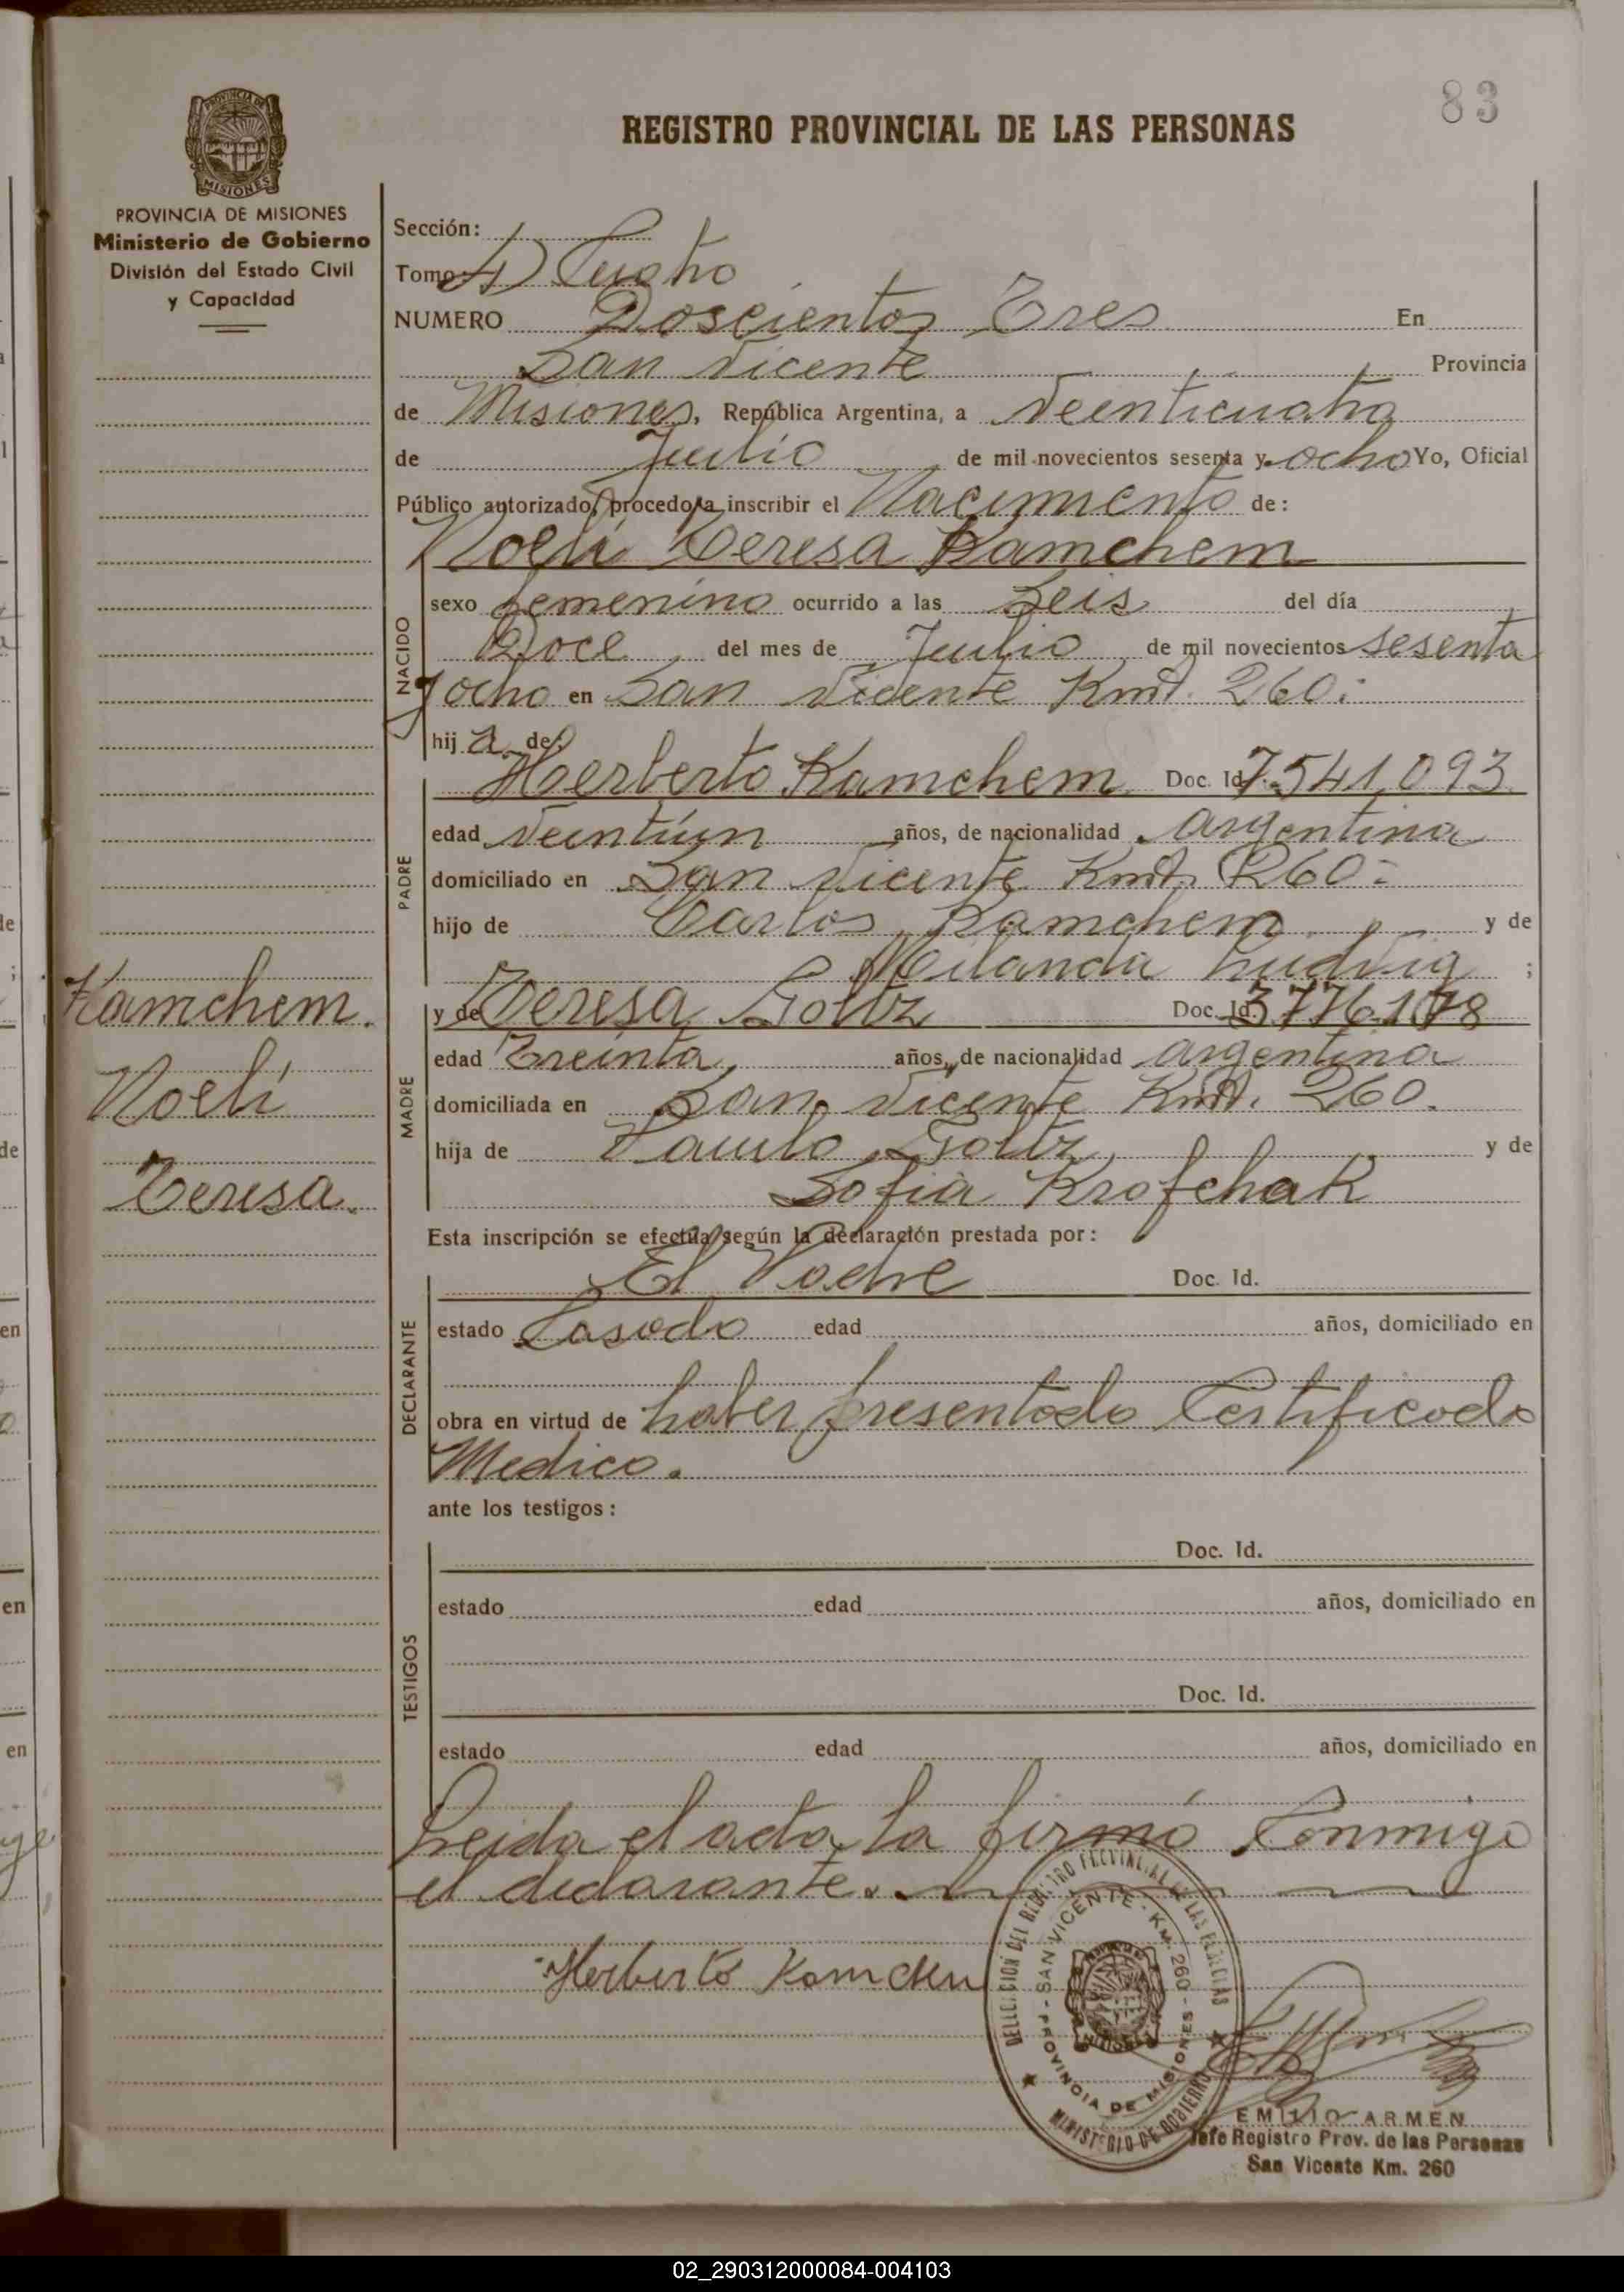 83
REGISTRO PROVINCIAL DE LAS PERSONAS
PROVINCIA DE MISIONES
MISIONES
PROVINCIA DE MISIONES
Ministerio de Gobierno
División del Estado Civil
y Capacidad
Kamchem.
Noeli
Teresa.
Sección:
Tomo: Cuatro
NUMERO Doscientos Tres En
San Vicente Provincia
de Misiones, República Argentina, a Veenticuatro
de Julio de mil novecientos sesenta y ocho Yo, Oficial
Público autorizado, procedo a inscribir el Nacimiento de:
Noeli Teresa Kamchem
NACIDO
sexo femenino ocurrido a las Seis del día
Doce del mes de Julio de mil novecientos sesenta
y ocho en San Vicente Kmt. 260:
hija de:
PADRE
Herberto Kamchem Doc. Id. 7.541.093
edad Veintiún años, de nacionalidad argentina
domiciliado en San Vicente Kmt. 260:
hijo de Carlos Kamchem y de
Ludvig ;
MADRE
y de Teresa Goltz Doc. Id.
edad Treinta años, de nacionalidad argentina
domiciliada en San Vicente Kmt. 260.
hija de Paulo Goltz y de
Sofia Krofchak
Esta inscripción se efectúa según la declaración prestada por:
DECLARANTE
El Padre Doc. Id.
estado Casado edad años, domiciliado en
obra en virtud de haber presentado Certificado
Medico.
ante los testigos:
TESTIGOS
Doc. Id.
estado edad años, domiciliado en
Doc. Id.
estado edad años, domiciliado en
Leida el acta, la firmó Conmigo
el declarante.
Herberto Kamchem
DELEGACION DEL REGISTRO PROVINCIAL DE LAS PERSONAS
SAN VICENTE - KM. 260 - PROVINCIA DE MISIONES
MINISTERIO DE GOBIERNO
EMILIO ARMEN
Jefe Registro Prov. de las Personas
San Vicente Km. 260
02_290312000084-004103